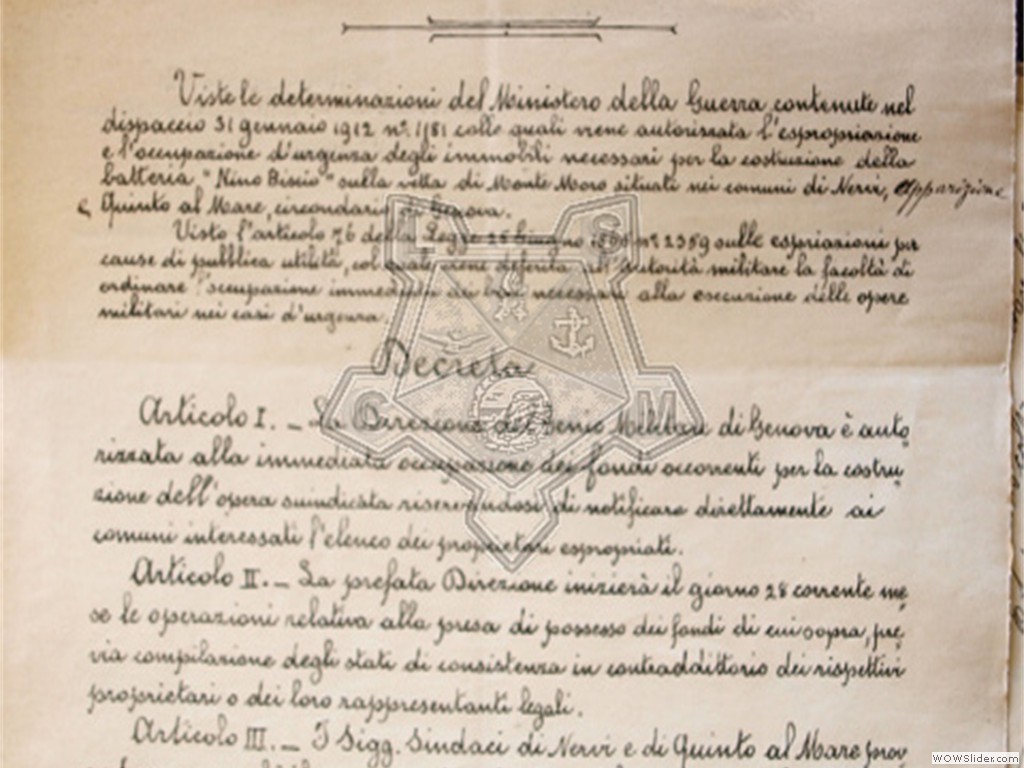 Viste le determinazioni del Ministero della Guerra contenute nel
dispaccio 31 gennaio 1912 n.° 1181 colle quali viene autorizzata l'espropriazione
e l'occupazione d'urgenza degli immobili necessari per la costruzione della
batteria "Nino Bixio" sulla vetta di Monte Moro situati nei comuni di Nervi, Apparizione
e Quinto al Mare, circondario di Genova.
Visto l'articolo 76 della Legge 25 Giugno 1865 n.° 2359 sulle espriazioni per
cause di pubblica utilità, col quale viene deferita all'autorità militare la facoltà di
ordinare l'occupazione immediata dei beni necessari alla esecuzione delle opere
militari nei casi d'urgenza.
Decreta
Articolo I. _ La Direzione del Genio Militare di Genova è auto
rizzata alla immediata occupazione dei fondi occorrenti per la costru
zione dell'opera suindicata riservandosi di notificare direttamente ai
comuni interessati l'elenco dei proprietari espropriati.
Articolo II. _ La prefata Direzione inizierà il giorno 28 corrente me
se le operazioni relativa alla presa di possesso dei fondi di cui sopra, pre
via compilazione degli stati di consistenza in contraddittorio dei rispettivi
proprietari o dei loro rappresentanti legali.
Articolo III. _ I Sigg. Sindaci di Nervi e di Quinto al Mare prov
L S
G M
WOWSlider.com